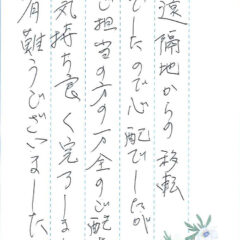 遠隔地からの移転
でしたので心配でしたが
ご担当の方の万全のご配
気持ち良く完了しま
有難うございました